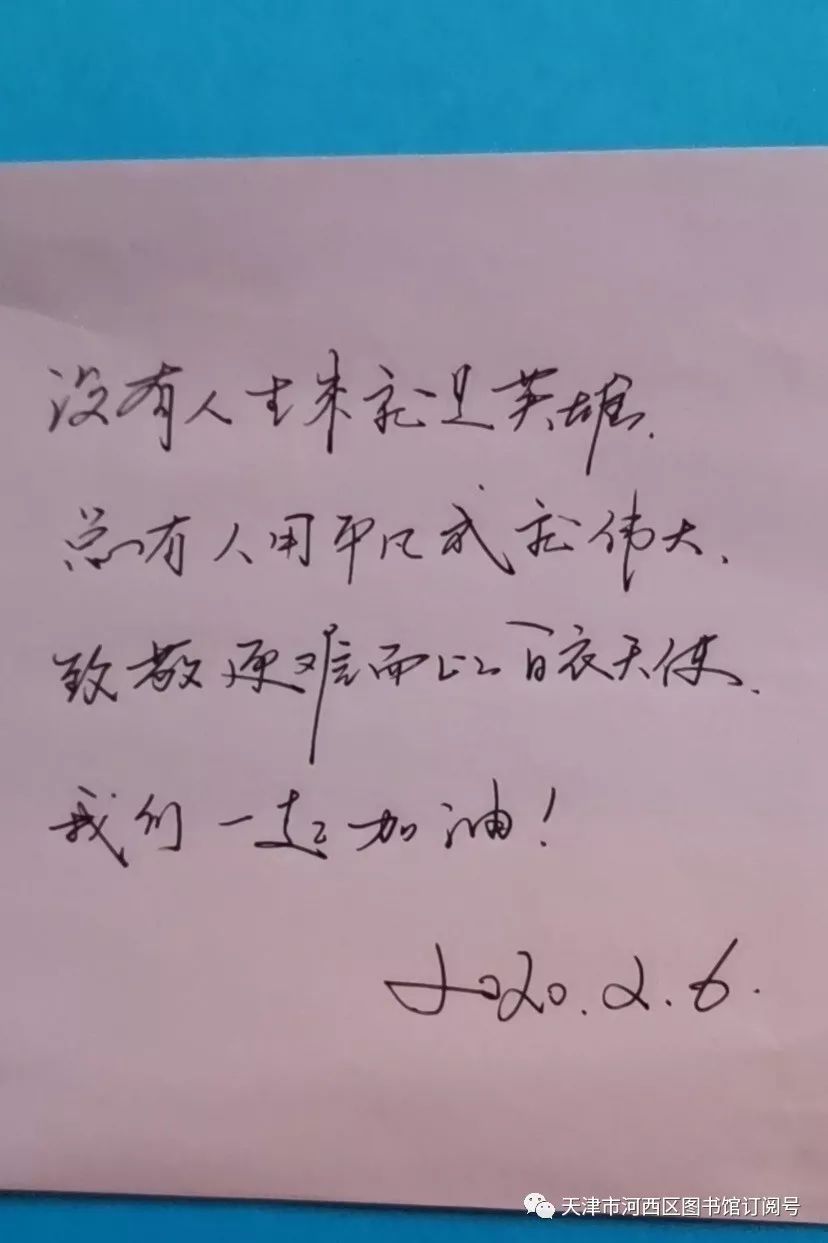 没有人生来就是英雄.
总有人用平凡成就伟大.
致敬逆难而上 白衣天使.
我们一起加油!
2020.2.6.
天津市河西区图书馆订阅号